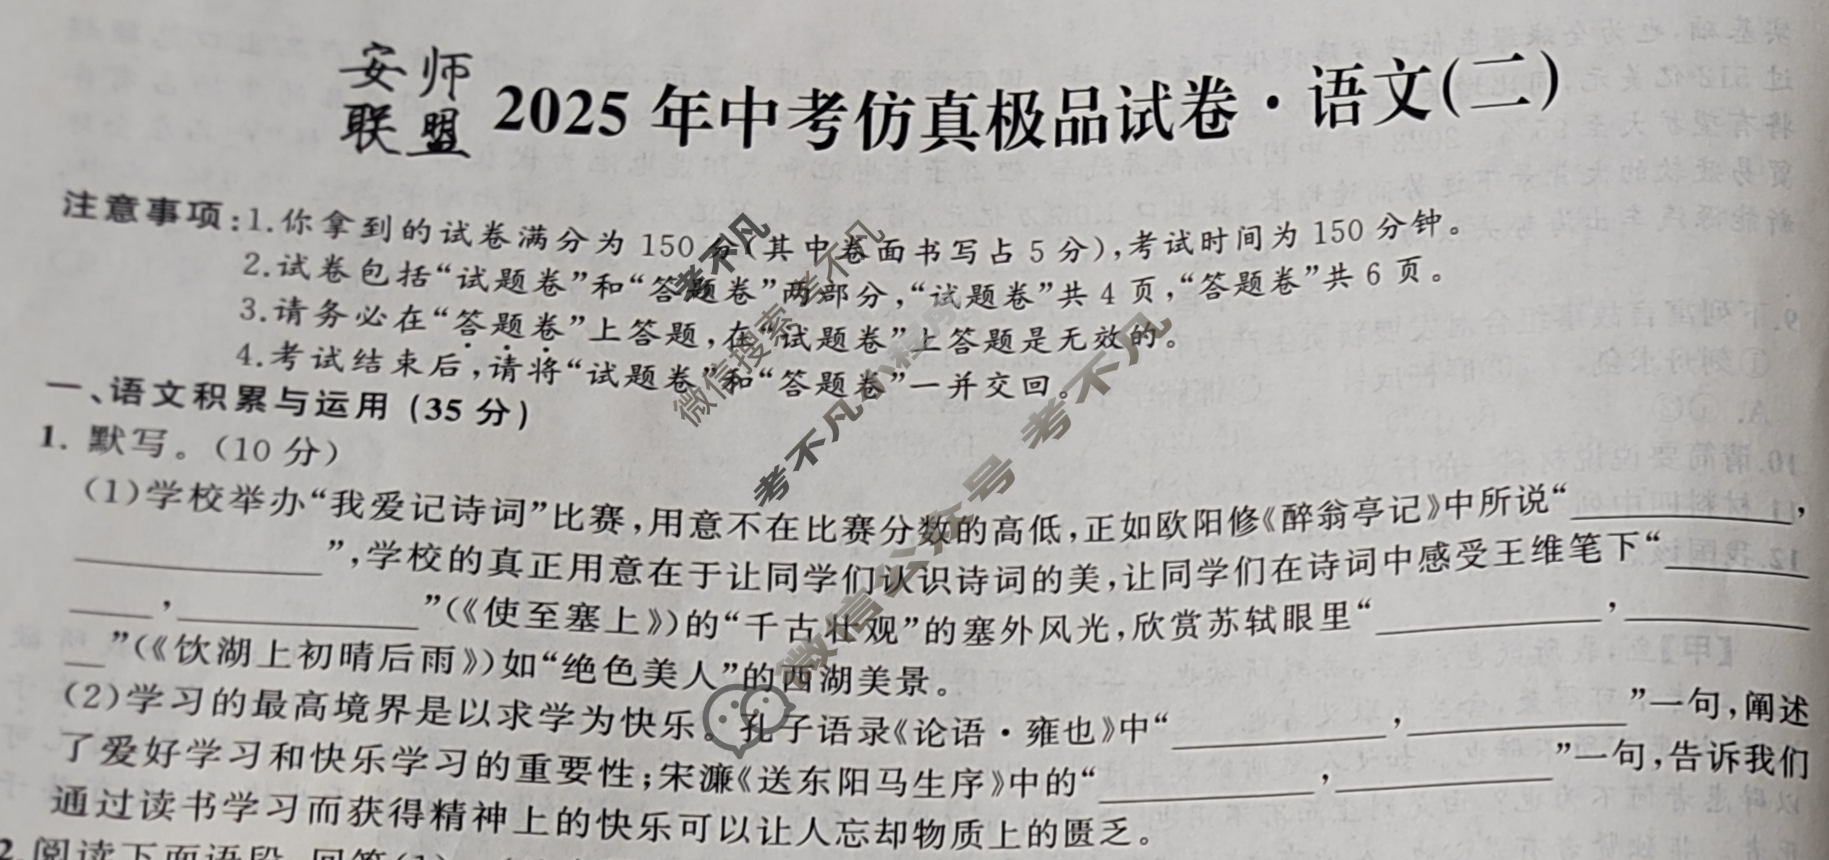 安师联盟 2025年中考仿真极品试卷·语文(二)
注意事项:1.你拿到的试卷满分为150分(其中卷面书写占5分),考试时间为150分钟。
2.试卷包括“试题卷”和“答题卷”两部分,“试题卷”共4页,“答题卷”共6页。
3.请务必在“答题卷”上答题,在“试题卷”上答题是无效的。
4.考试结束后,请将“试题卷”和“答题卷”一并交回。
一、语文积累与运用(35分)
1. 默写。(10分)
(1)学校举办“我爱记诗词”比赛,用意不在比赛分数的高低,正如欧阳修《醉翁亭记》中所说“________,
________”,学校的真正用意在于让同学们认识诗词的美,让同学们在诗词中感受王维笔下“________
____,________”(《使至塞上》)的“千古壮观”的塞外风光,欣赏苏轼眼里“________,________
__”(《饮湖上初晴后雨》)如“绝色美人”的西湖美景。
(2)学习的最高境界是以求学为快乐。孔子语录《论语·雍也》中“________,________”一句,阐述
了爱好学习和快乐学习的重要性;宋濂《送东阳马生序》中的“________,________”一句,告诉我们
通过读书学习而获得精神上的快乐可以让人忘却物质上的匮乏。
2.阅读下面语段,回答(1)
考不凡
微信搜索 考不凡
考不凡小程序
微信公众号 考不凡